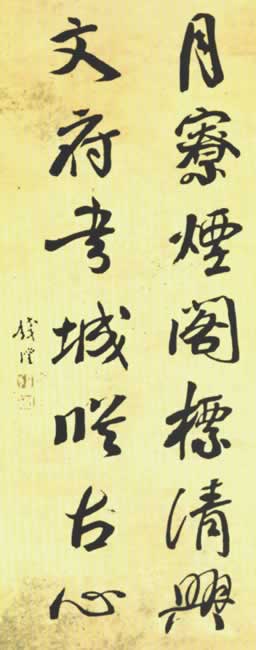 月寮煙閣標清興
文府書城古心
錢灃